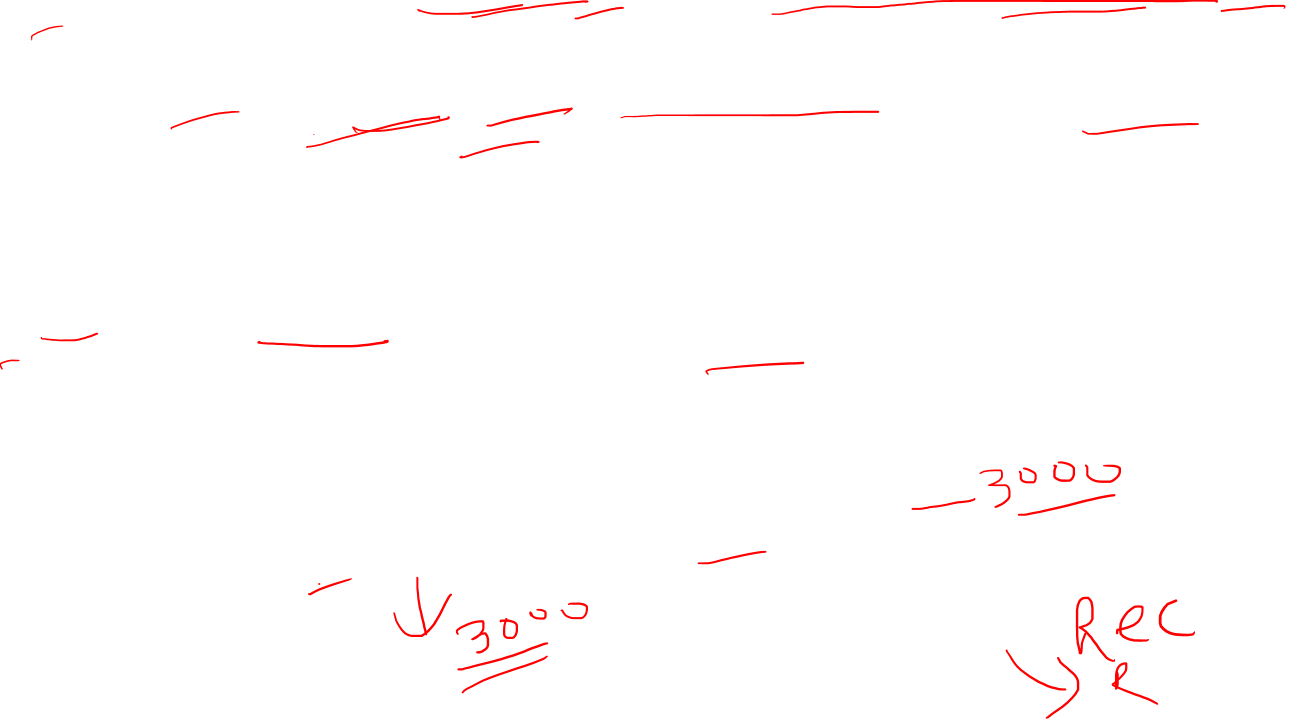 3000
3000
Rec
R